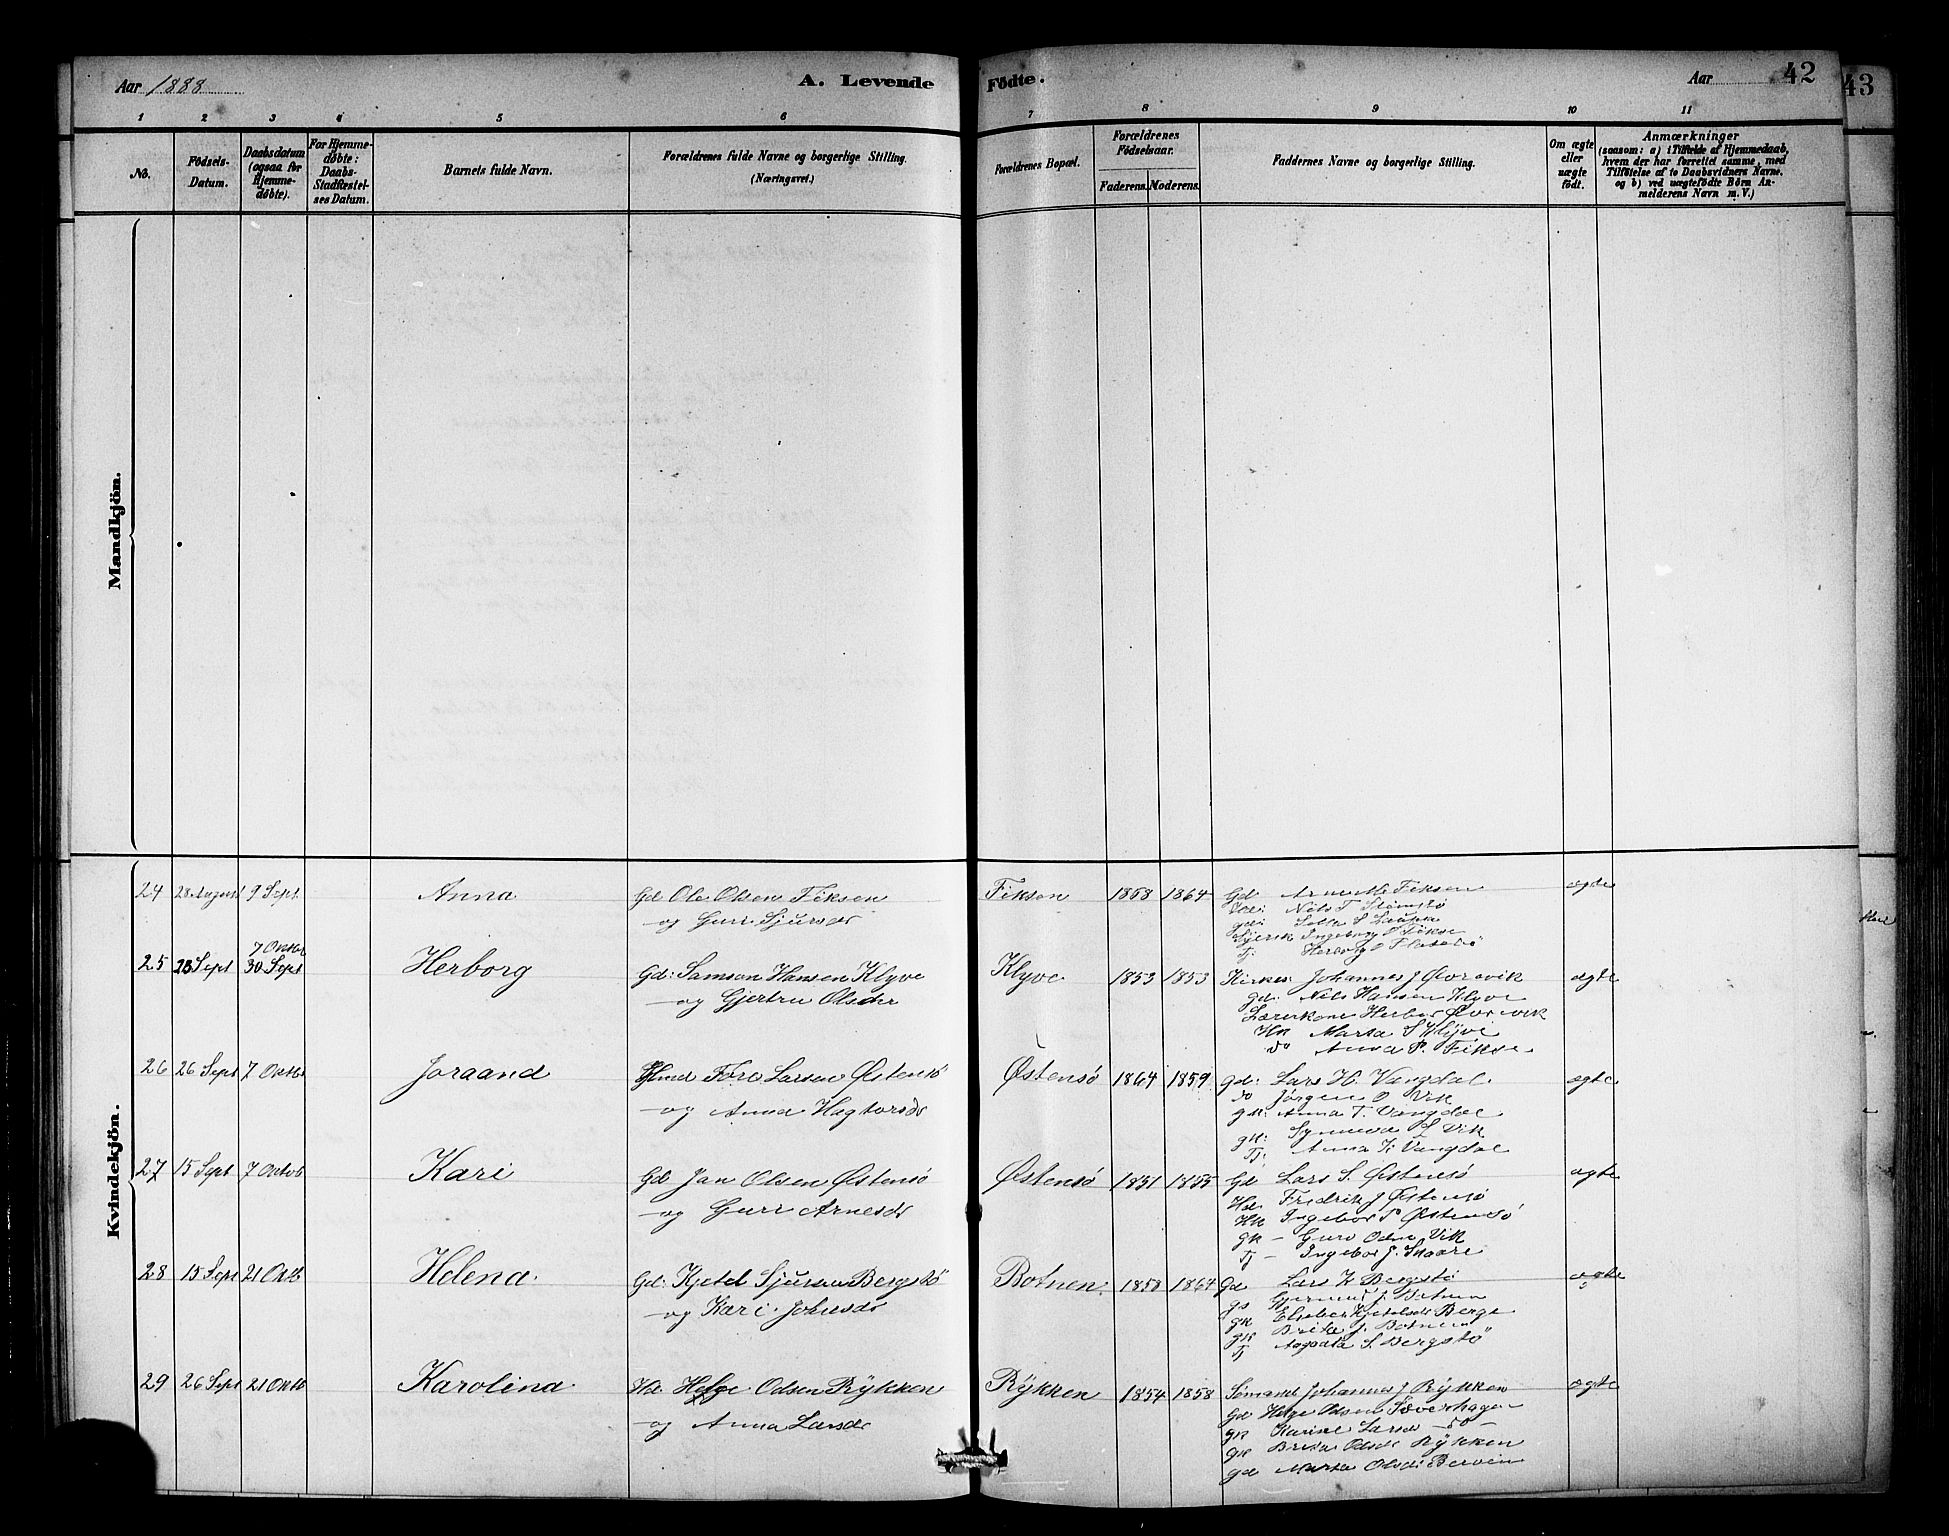 Aar 1888 A. Levende Födte. Aar 42
43
1 2 3 4 5 6 7 8 9 10 11
No.
Födsels-Datum.
Daabsdatum (ogsaa for Hjemme-döbte).
For Hjemme-döbte: Daabs-Stadfæstel-ses Datum.
Barnets fulde Navn.
Forældrenes fulde Navne og borgerlige Stilling.
(Næringsvei.)
Forældrenes Bopæl.
Forældrenes Födselsaar.
Faderens. Moderens.
Faddernes Navne og borgerlige Stilling.
Om ægte eller uægte födt.
Anmærkninger
(saasom: a) i Tilfælde af Hjemmedaab,
hvem der har forrettet samme, med
Tilföielse af to Daabsvidners Navne.
og b) ved uægtefödte Börn An-
melderens Navn m. V.)
Mandkjön.
Kvindekjön.
24 28 August 9 Sept Anna Gd Ole Olsen Fiksen Fikson 1858 1864 Gd Arne Fiksen ægte
og Guri Sjursdr
Nils T Stensø
gd:
Ingeborg O Fikse
Tj: Herborg O
7 Oktbr
25 23 Sept 30 Sept Herborg Gd: Samson Hansen Klyve Klyve 1853 1853 Kirkes: Johannes J Øvrevik ægte
og Gjertru Olsdtr
gd: Nils Hansen Klyve
Lærerkone Herbor Øvrevik
Hk Marta S Klyve
do Anna P. Fikse
26 26 Sept 7 Oktbr Joraand Tore Larsen Østensø Østensö 1864 1859 gd: Lars H. Vangdal ægte
og Anna Hagtorsdr
do Jørgen O Vik
gk: Anna T. Vangdal
gk: Synneva L Vik
Tj: Anna K Vangdal
27 15 Sept 7 Oktob Kari Gd Jan Olsen Østensö Østensö 1851 1855 Gd Lars S. Østensö ægte
og Guri Arnesdr
Hd Fredrik J Østensö
Hk Ingebor P Østensö
gk – Guro Odsdr Vik
Tj – Ingebor J. Skaare
28 15 Sept 21 Oktb Helena. Gd: Kjetel Sjursen Bergstö Botnen 1858 1864 Gd Lars K Bergstö ægte
og Kari Johnsdr
gs J. Botnen
gk Elseber Kjetelsdr Berge
gk Brita J. Botnen
Tj Aagaata S. Bergstö
29 26 Sept 21 Oktb Karolina Hd. Helge Odsen Rykken Rykken 1854 1858 Sömand Johannes J Rykken ægte
og Anna Larsdr
Gd Helge Odsen Sæverhagen
gk Karine Larsd – do –
gk Brita Odsdr Rykken
gd Marta Olsdr Berven